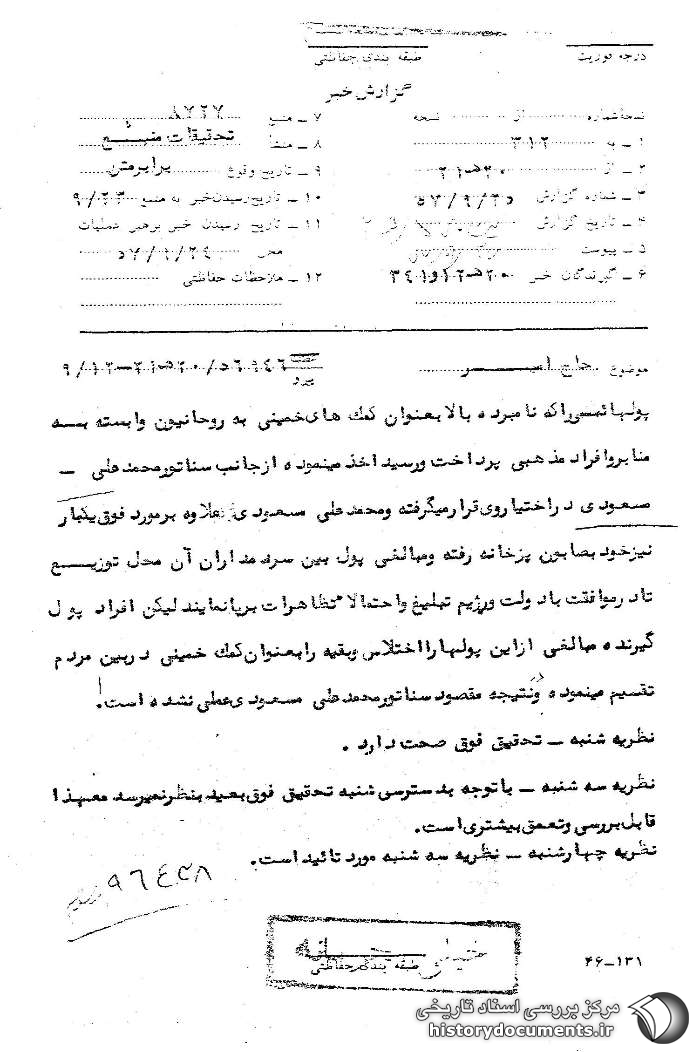 درجه فوریت
طبقه بندی حفاظتی
گزارش خبر
نسخه شماره از نسخه
۱ ـ به ۳۱۲
۲ ـ از ۲۰ ه ۲۱
۳ ـ شماره گزارش
۴ ـ تاریخ گزارش ۵۷/۹/۲۵
۵ ـ پیوست
۶ ـ گیرندگان خبر ۲۰ ه ۱۲ و ۳۴۱
۷ ـ منبع ۸۷۲۷
۸ ـ منشأ تحقیقات منبع
۹ ـ تاریخ وقوع برابر متن
۱۰ ـ تاریخ رسیدن خبر به منبع ۹/۲۳
۱۱ ـ تاریخ رسیدن خبر برهبر عملیات
محل ۵۷/۹/۲۴
۱۲ ـ ملاحظات حفاظتی
موضوع حاج
پیرو ۵۶۹۴۶/۲۰ ه ۲۱-۹/۱۲
پولهائی را که نامبرده بالا بعنوان کمک های خمینی به روحانیون وابسته به
منابر و افراد مذهبی پرداخت ورسید اخذ مینموده از جانب سناتور محمدعلی ـ
مسعودی در اختیار وی قرار میگرفته ومحمدعلی مسعودی علاوه بر مورد فوق یکبار
نیز خود بصابون پزخانه رفته ومبالغی پول بین سردمداران آن محل توزیع
تا در موافقت با دولت ورژیم تبلیغ واحتمالا تظاهرات برپا نمایند لیکن افراد پول
گیرنده مبالغی از این پولها را اختلاس وبقیه را بعنوان کمک خمینی دربین مردم
تقسیم مینموده ودر نتیجه مقصود سناتور محمدعلی مسعودی عملی نشده است.
نظریه شنبه ـ تحقیق فوق صحت دارد .
نظریه سه شنبه ـ با توجه بدسترسی شنبه تحقیق فوق بعید بنظر نمیرسد معهذا
قابل بررسی وتعمق بیشتری است.
نظریه چهارشنبه ـ نظریه سه شنبه مورد تائید است.
۹۶۴۳۸
خیلی محرمانه
طبقه بندی حفاظتی
۴۶-۱۳۱
مرکز بررسی اسناد تاریخی
historydocuments.ir